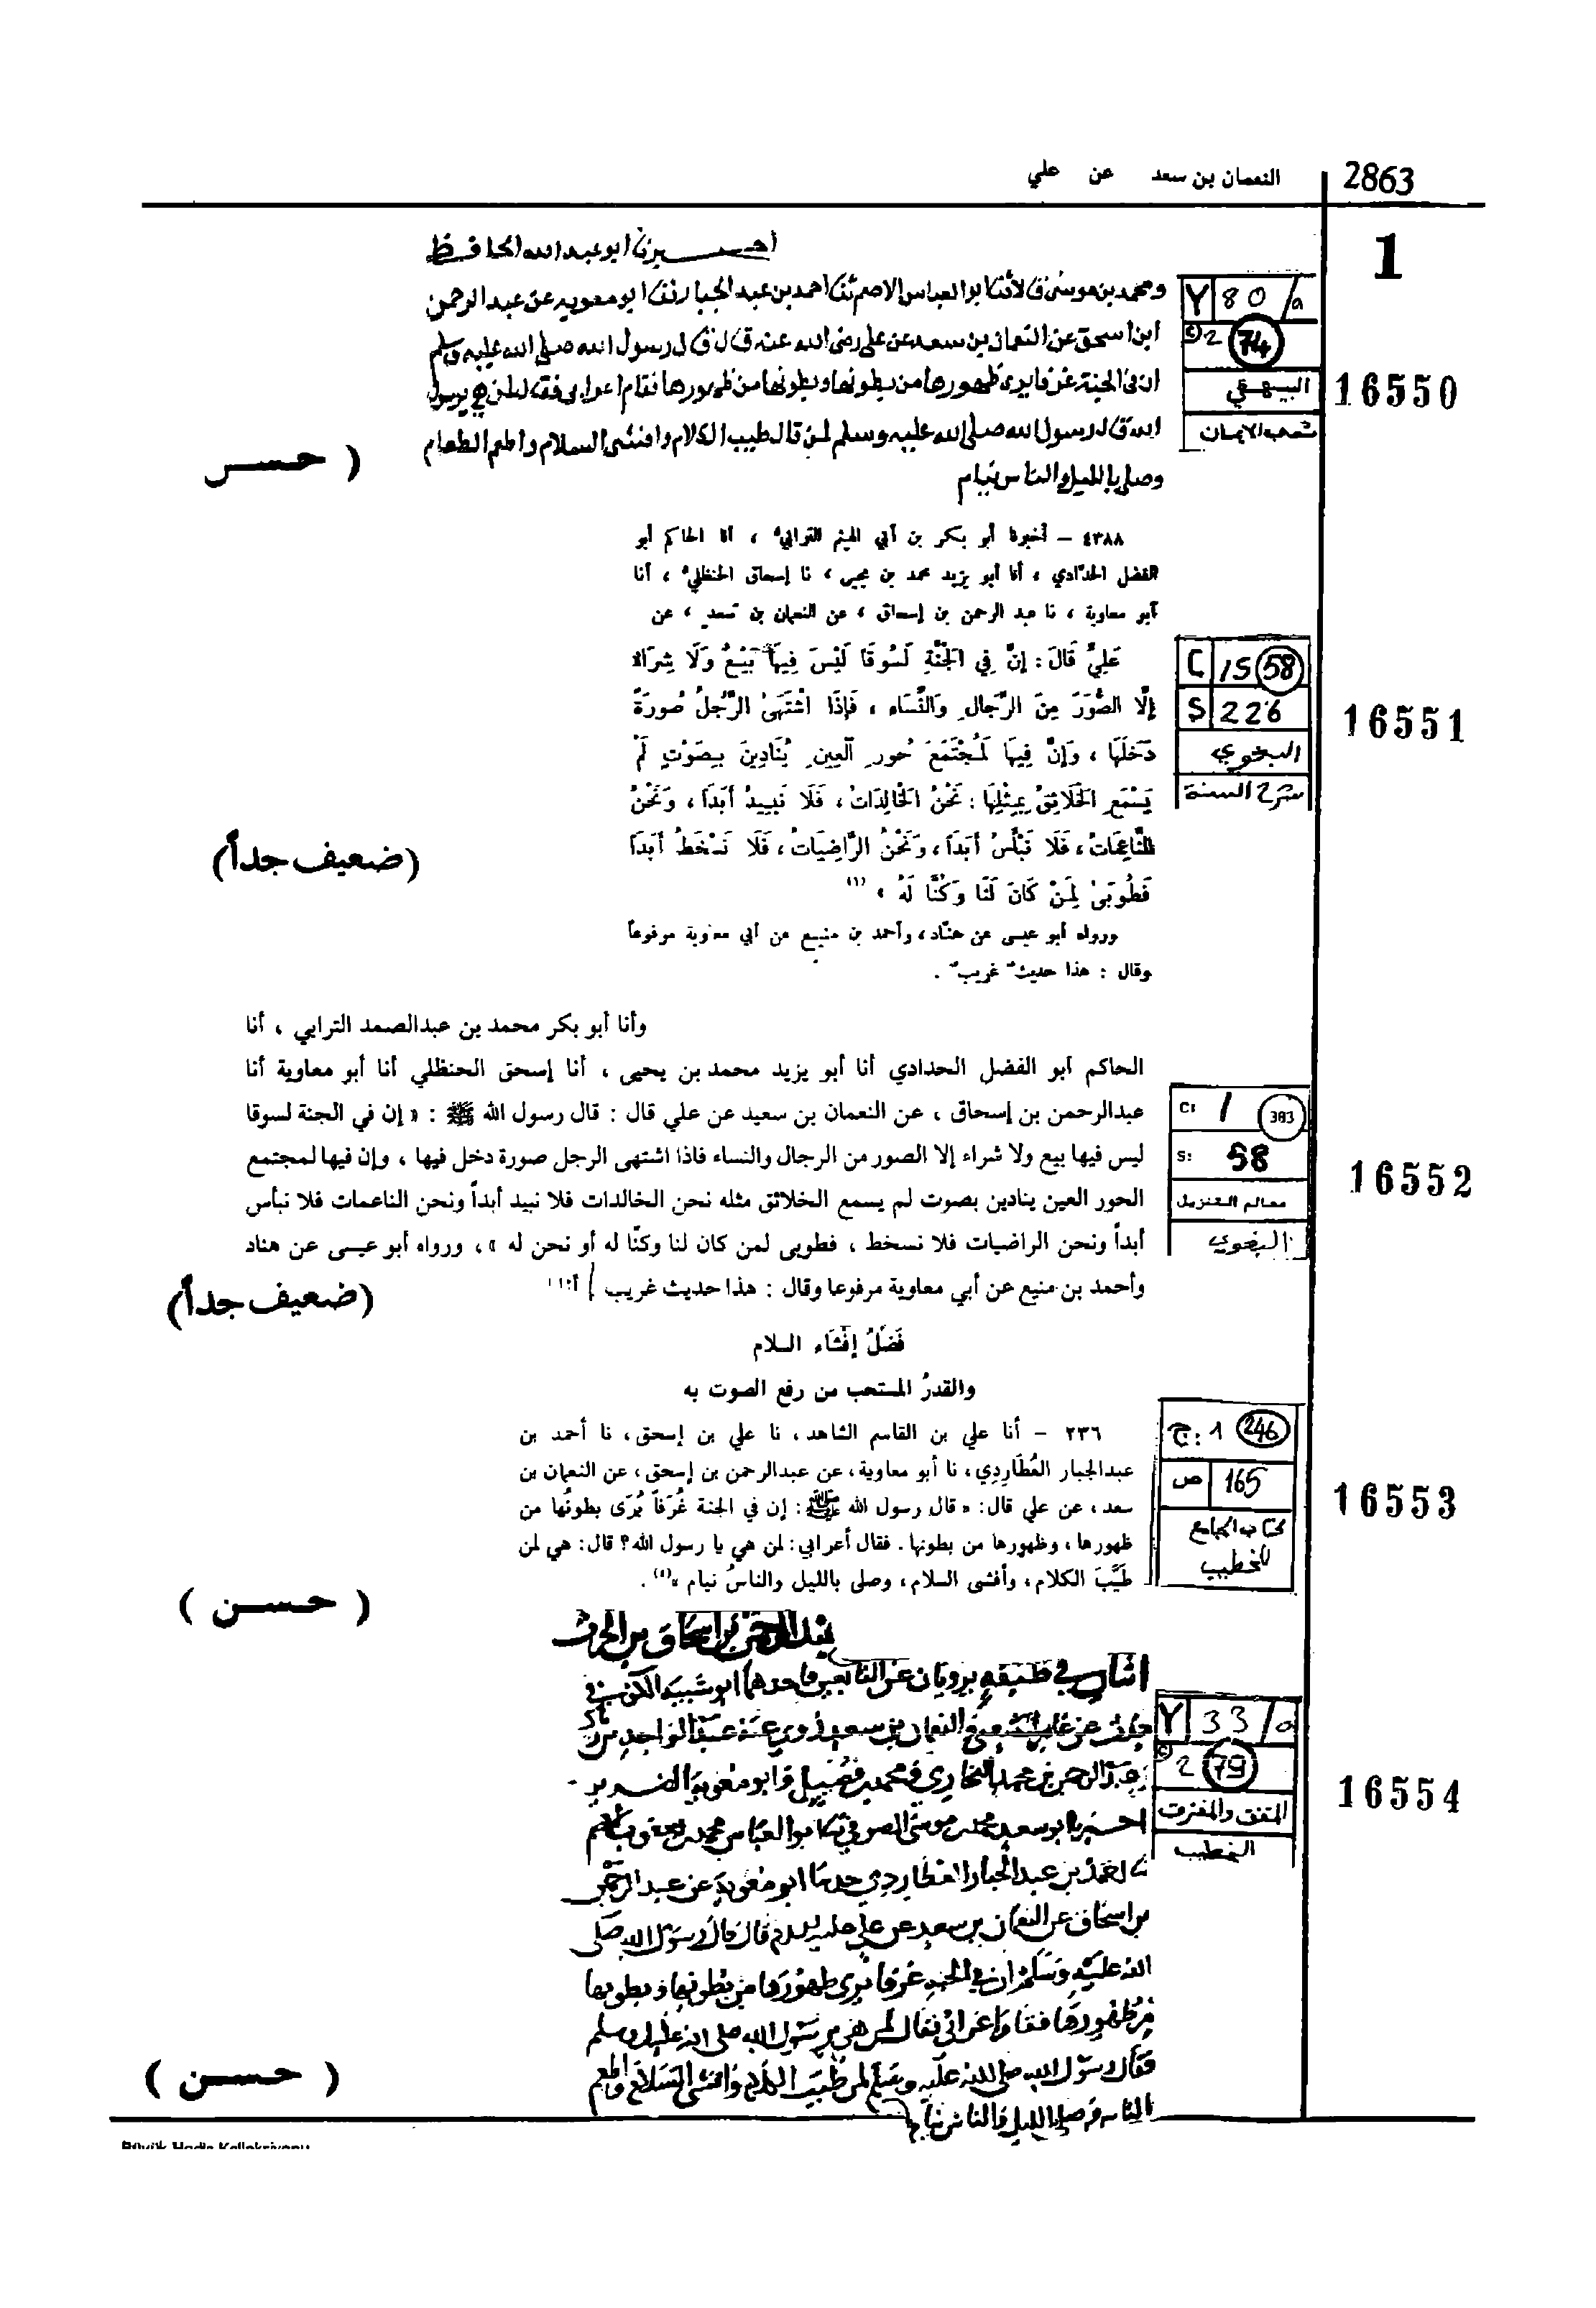 2863
النعمان بن سعد عن علي
1
أخبرنا ابو عبد الله الحافظ
ومحمد بن موسى قالا ثنا ابو العباس الاصم ثنا احمد بن عبد الجبار ثنا ابو معويه عن عبد الرحمن
ابن اسحق عن النعمان بن سعد عن علي رضى الله عنه قال قال رسول الله صلى الله عليه وسلم
ان فى الجنة غرفا يرى ظهورها من بطونها وبطونها من ظهورها فقام اعرابى فقال لمن هي يرسول
الله قال رسول الله صلى الله عليه وسلم لمن قال طيب الكلام وافشى السلام واطعم الطعام
وصلى بالليل والناس نيام
Y 80/a
C 2 74
البيهقي
شعب الايمان
16550
( حسن
٤٣٨٨ – أخبرنا أبو بكر بن أبي الهيثم الترابي ، أنا الحاكم أبو
الفضل الحدّادي ، أنا أبو يزيد محمد بن يحيى ، نا إسحاق الحنظلي ، أنا
أبو معاوية ، نا عبد الرحمن بن إسحاق ، عن النعمان بن سعد ، عن
عَلِيٍّ قَالَ : إنَّ فِي الجَنَّةِ لَسُوقَا لَيْسَ فِيهَا بَيْعٌ وَلَا شِرَاءٌ
إلَّا الصُّوَرَ مِنَ الرَّجَالِ وَالنَّسَاءِ ، فَإِذَا اشْتَهَىْ الرَّجُلُ صُورَةً
دَخَلَهَا ، وَإنَّ فِيهَا لَمُجْتَمَعَ حُورِ العِينِ يُنَادِينَ بِصَوْتٍ لَمْ
يَسْمَعِ الخَلَائِقُ بِمِثْلِهَا : نَحْنُ الخَالِدَاتُ ، فَلَا نَبِيدُ أبَداً ، وَنَحْنُ
النَّاعِمَاتُ ، فَلَا نَبْأَسُ أبَداً ، وَنَحْنُ الرَّاضِيَاتُ ، فَلَا نَسْخَطُ أبَداً
فَطُوبَىْ لِمَنْ كَانَ لَنَا وَكُنَّا لَهُ » (١)
ورواه أبو عيسى عن هنّاد ، وأحمد بن منيع عن أبي معاوية مرفوعاً
وقال : هذا حديث غريب .
C 15 58
S 226
البغوي
شرح السنة
16551
(ضعيف جداً)
وأنا أبو بكر محمد بن عبدالصمد الترابي ، أنا
الحاكم أبو الفضل الحدادي أنا أبو يزيد محمد بن يحيى ، أنا إسحق الحنظلي أنا أبو معاوية أنا
عبدالرحمن بن إسحاق ، عن النعمان بن سعيد عن علي قال : قال رسول الله ﷺ : « إن في الجنة لسوقا
ليس فيها بيع ولا شراء إلا الصور من الرجال والنساء فاذا اشتهى الرجل صورة دخل فيها ، وإن فيها لمجتمع
الحور العين ينادين بصوت لم يسمع الخلائق مثله نحن الخالدات فلا نبيد أبداً ونحن الناعمات فلا نبأس
أبداً ونحن الراضيات فلا نسخط ، فطوبى لمن كان لنا وكنّا له أو نحن له » ، ورواه أبو عيسى عن هناد
وأحمد بن منيع عن أبي معاوية مرفوعا وقال : هذا حديث غريب
C: 1 383
S: 58
معالم التنزيل
البغوي
16552
(ضعيف جداً)
فَضْلُ إفْشَاء السلام
والقدرُ المستحب من رفع الصوت به
٢٣٦ – أنا علي بن القاسم الشاهد ، نا علي بن إسحق ، نا أحمد بن
عبدالجبار العُطَارِدِي ، نا أبو معاوية ، عن عبدالرحمن بن إسحق ، عن النعمان بن
سعد ، عن علي قال : « قال رسول الله ﷺ : إن في الجنة غُرَفاً يُرَى بطونُها من
ظهورها ، وظهورها من بطونها . فقال أعرابي : لمن هي يا رسول الله ؟ قال : هي لمن
طَيَّبَ الكلام ، وأفشى السلام ، وصلى بالليل والناسُ نيام »(٤) .
ج : 1 246
ص 165
كتاب الجامع
للخطيب
16553
( حسن )
عبد الرحمن بن اسحاق بن الحرث
اثنان في طبقة يرويان عن التابعين احدهما ابو شيبه الكوفي
عن عامر الشعبي والنعمان بن سعد روى عنه عبد الواحد بن
وعبد الرحمن بن محمد المحاربي ومحمد بن فضيل وابو معوية الضرير
اخبرنا ابو سعيد محمد بن موسى الصوفي ثنا ابو العباس محمد بن يعقوب الاصم
ثنا احمد بن عبد الجبار العطاردي حدثنا ابو معوية عن عبد الرحمن
بن اسحاق عن النعمان بن سعد عن علي عليه السلام قال قال رسول الله صلى
الله عليه وسلم ان في الجنة غرفا يرى ظهورها من بطونها وبطونها
من ظهورها فقام اعرابي فقال لمن هي يرسول الله صلى الله عليه وسلم
فقال رسول الله صلى الله عليه وسلم لمن طيب الكلام وافشى السلام واطعم
الناس وصلى بالليل والناس نيام
Y 33/a
C 2 79
المتفق والمفترق
الخطيب
16554
( حسن )
Büyük Hadis Kolleksiyonu